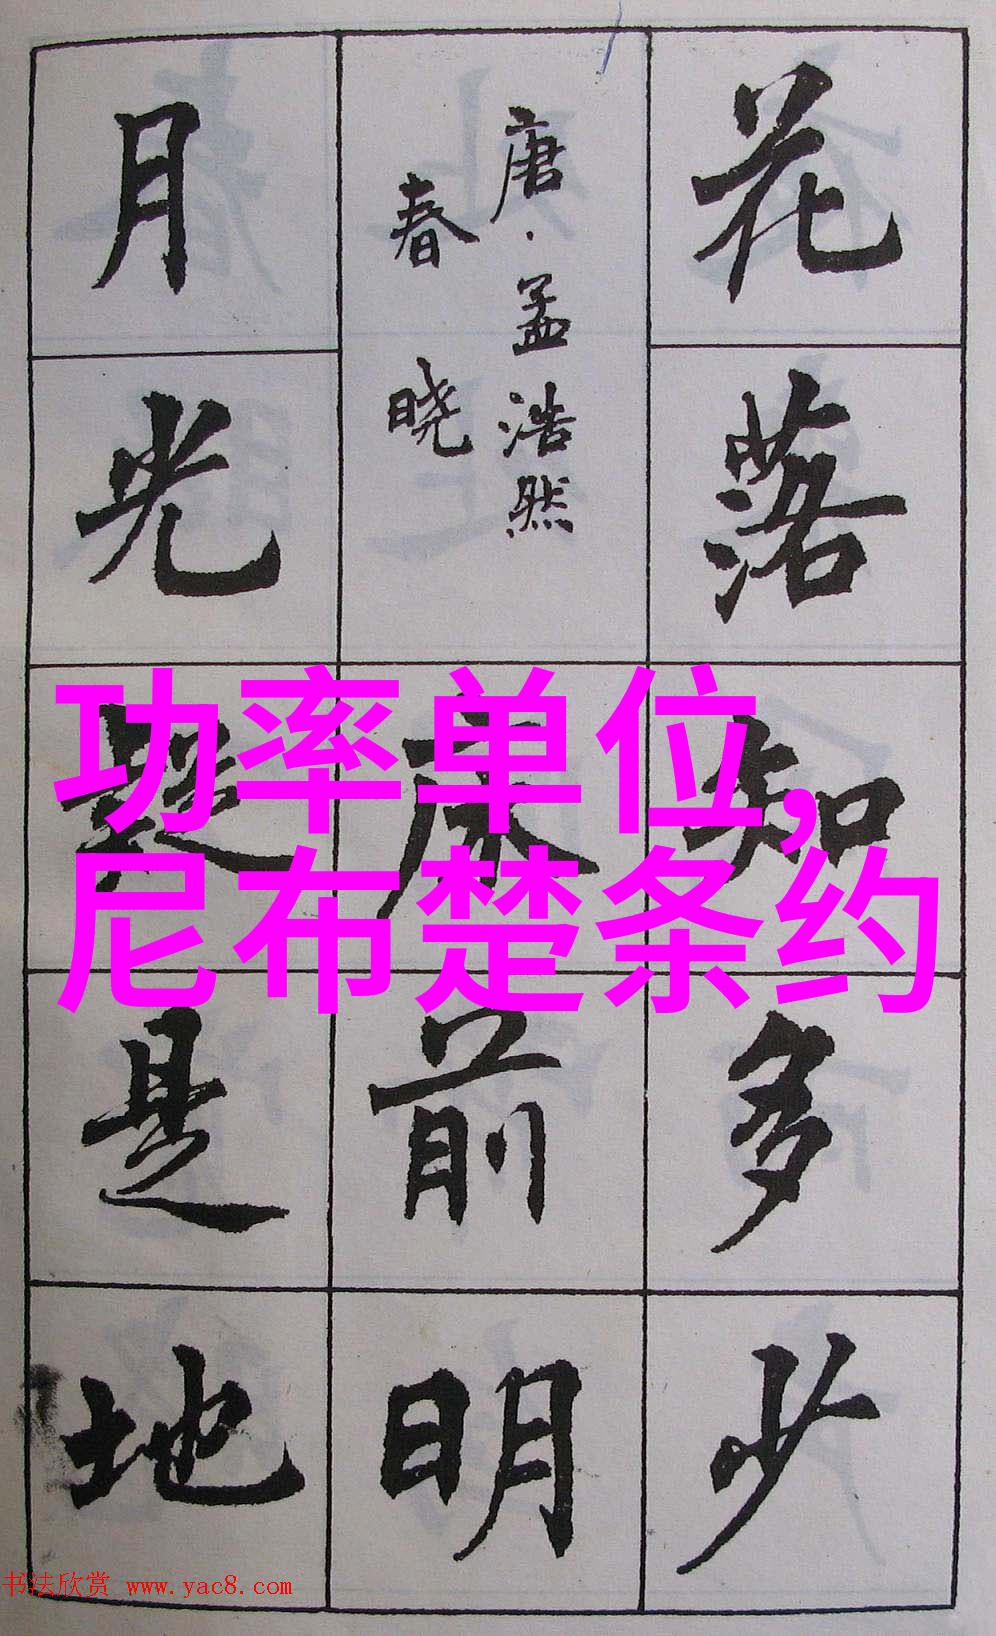 花落知多少
唐·孟浩然
春晓
床前明
月光疑是地
功率单位,
尼布楚条约
书法欣赏 www.yac8.com